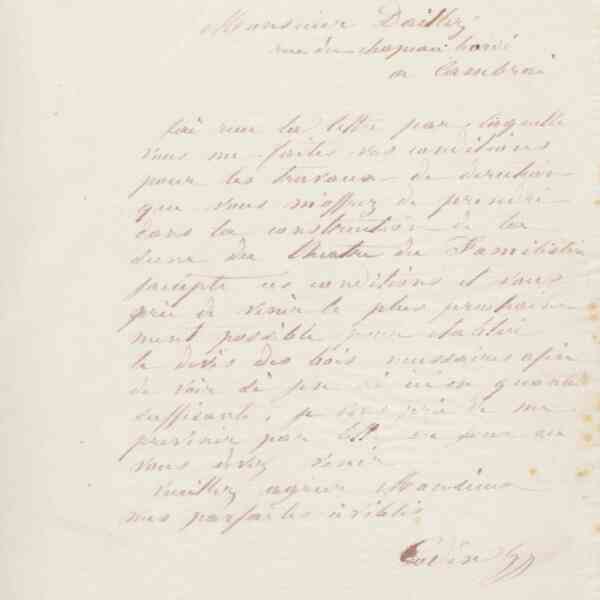 Monsieur Dailly
rue du chapeau bordé
a Cambrai
J'ai reçu la lettre par laquelle
vous me faites vos conditions
pour les travaux de direction
que vous m'offrez de prendre
dans la construction de la
scène du théâtre du Familistère
J'accepte ces conditions et vous
prie de venir le plus prochaine
ment possible pour établir
le devis des bois nécessaires afin
de voir si j'en ai ici en quantité
suffisante, je vous prie de me
prévenir par du jour où
vous devez venir
Veuillez agréer Monsieur
mes parfaites civilités
Godin